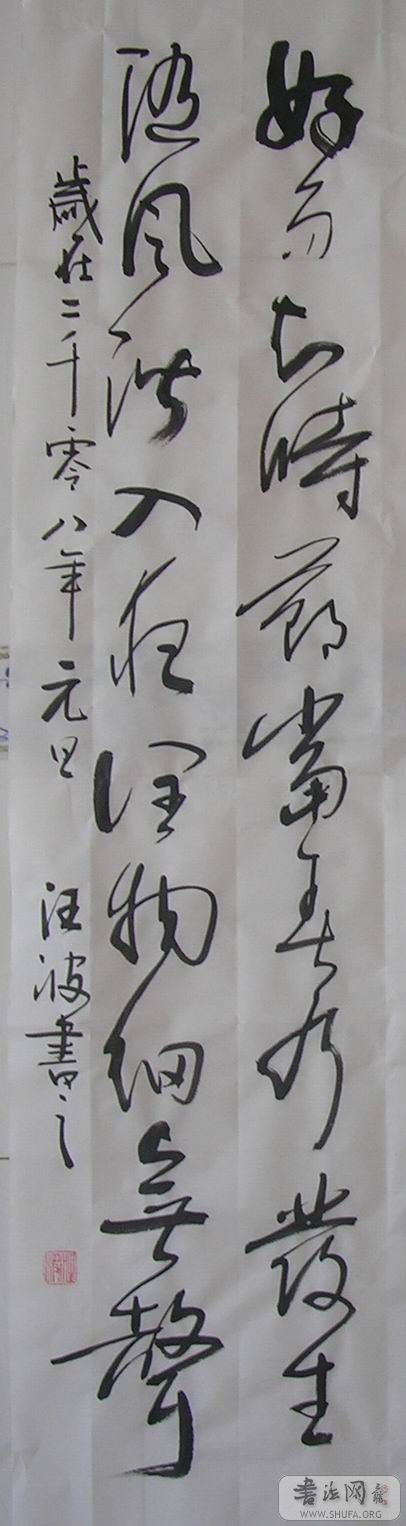 好雨知時節當春乃發生
隨風潛入夜潤物細無聲
歲在二千零八年元旦 汪波書之
書法网
WWW.SHUFA.ORG